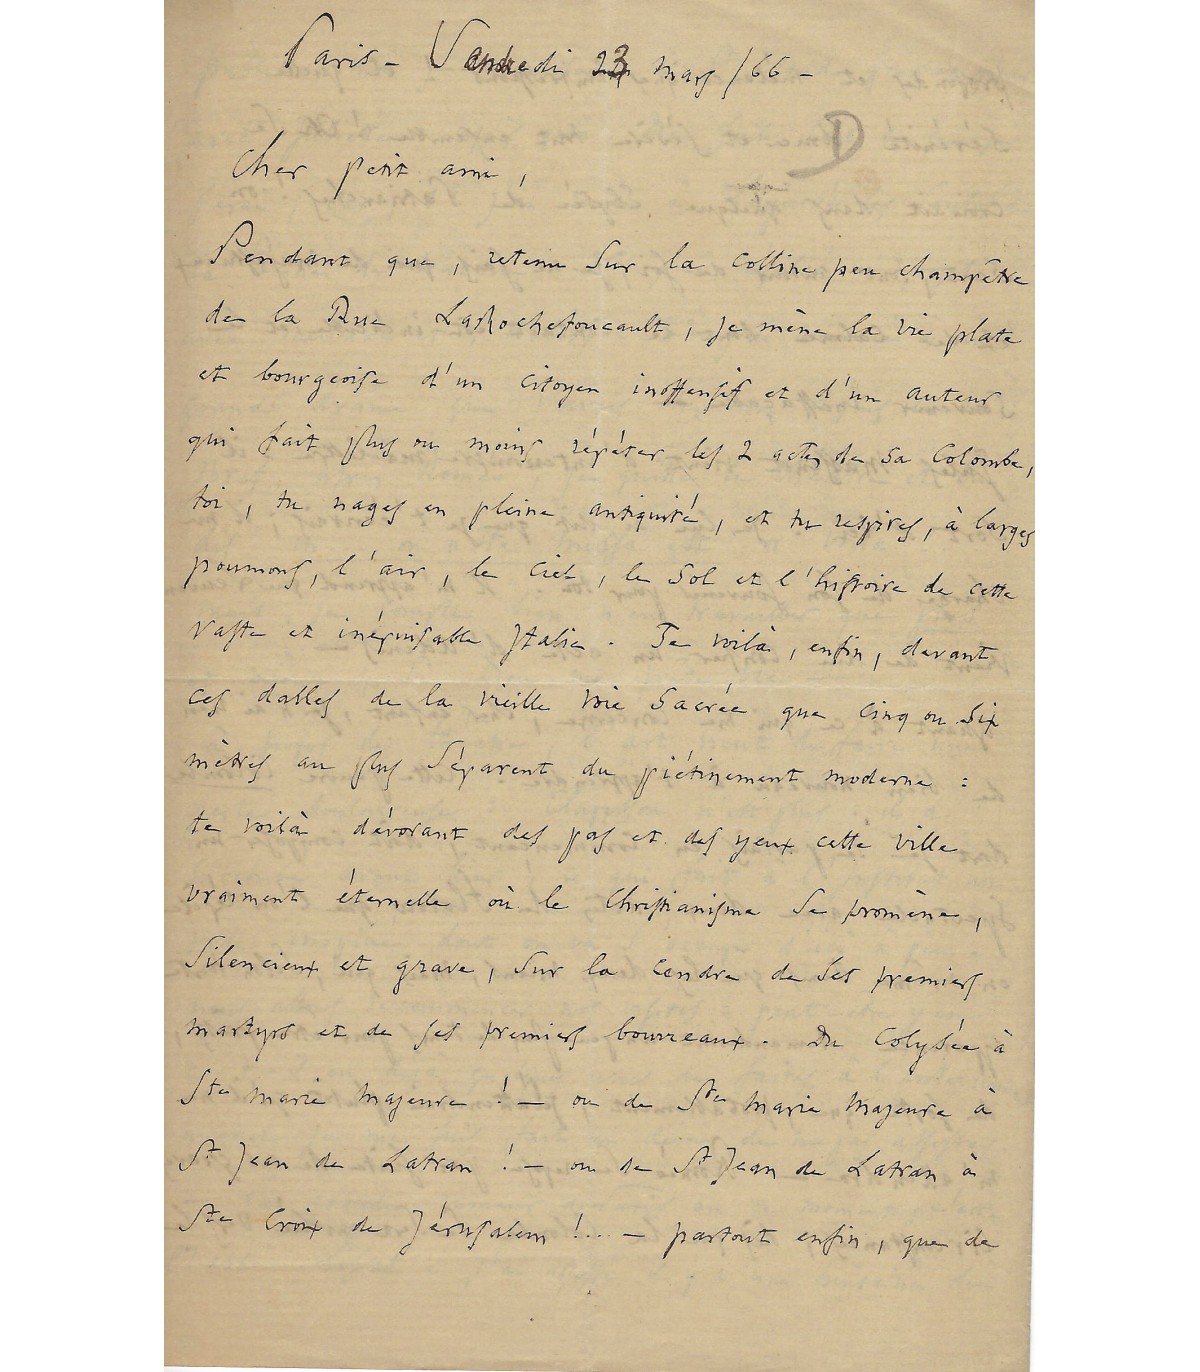 Paris - Vendredi 23 mars /66 -
Cher petit ami,
Pendant que, retenu sur la colline peu champêtre
de la Rue LaRochefoucault, je mène la vie plate
et bourgeoise d'un citoyen inoffensif et d'un auteur
qui fait plus ou moins répéter les 2 actes de sa Colombe,
toi, tu nages en pleine antiquité, et tu respires, à larges
poumons, l'air, le ciel, le sol et l'histoire de cette
vaste et inépuisable Italie. Te voilà, enfin, devant
ces dalles de la vieille voie Sacrée que cinq ou six
mètres au plus séparent du piétinement moderne :
te voilà dévorant des pas et des yeux cette ville
vraiment éternelle où le Christianisme se promène,
silencieux et grave, sur la cendre de ses premiers
martyrs et de ses premiers bourreaux. Du Colysée à
Ste Marie Majeure ! - ou de Ste Marie Majeure à
St Jean de Latran ! - ou de St Jean de Latran à
Ste Croix de Jérusalem !.. - partout enfin, que de